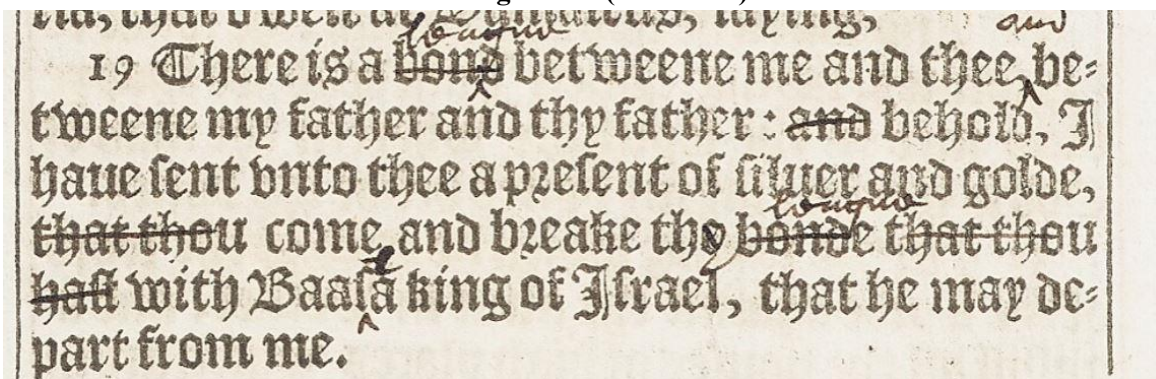 ria, that dwelt at Damaſcus, ſaying,
league and
19 There is a bond betweene me and thee, be=
tweene my father and thy father : and behold, I
haue ſent vnto thee a preſent of ſiluer and golde,
league
that thou come and breake thy bonde that thou
haſt with Baaſa king of Iſrael, that he may de=
part from me.